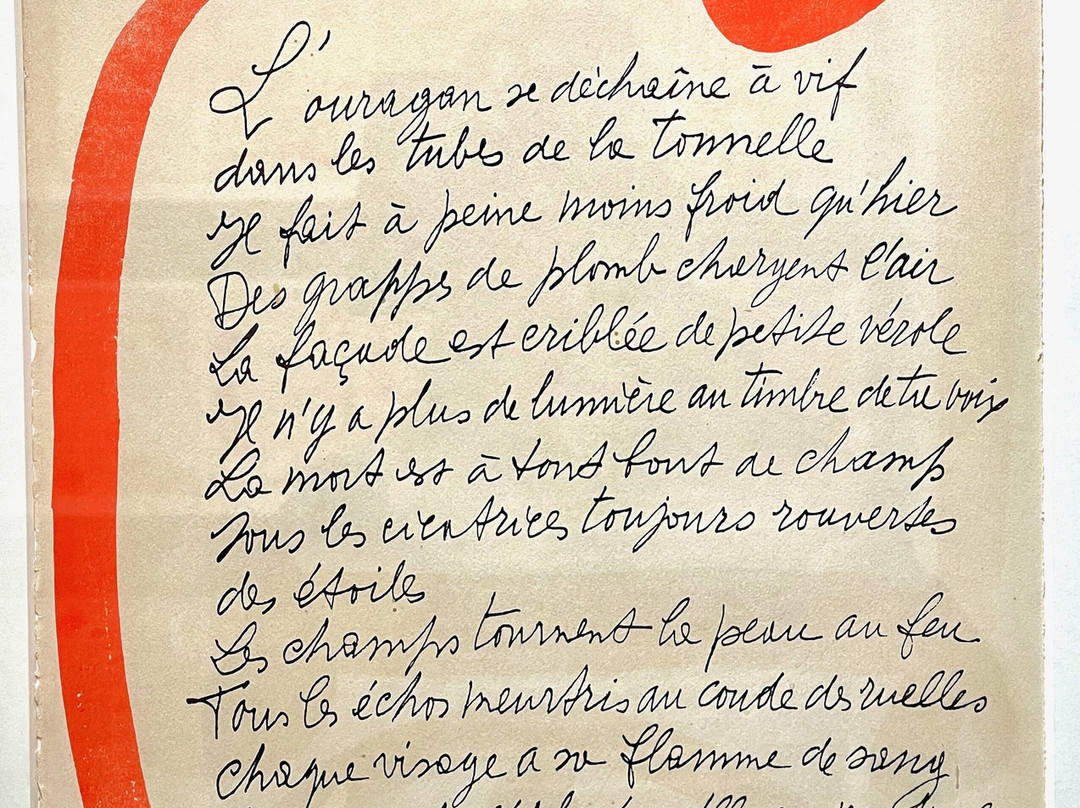 L'ouragan se déchaîne à vif
dans les tubes de la tonnelle
Il fait à peine moins froid qu'hier
Des grappes de plomb chargent l'air
La façade est criblée de petite vérole
Il n'y a plus de lumière au timbre de ta voix
La mort est à tout bout de champ
Sous les cicatrices toujours rouvertes
des étoiles
Les champs tournent la peau au feu
Tous les échos meurtris au coude des ruelles
Chaque visage a sa flamme de sang